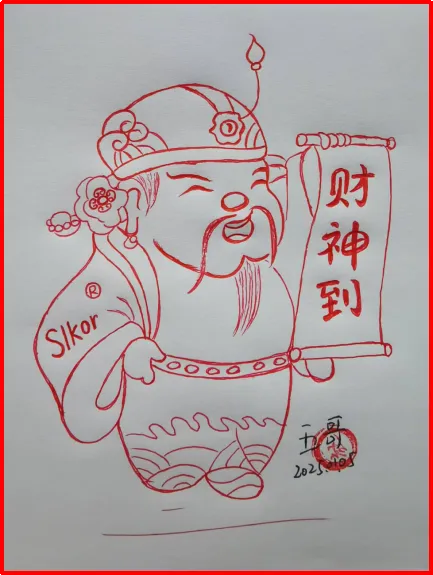 财神到
®
Slkor
五哥
2025.1.05